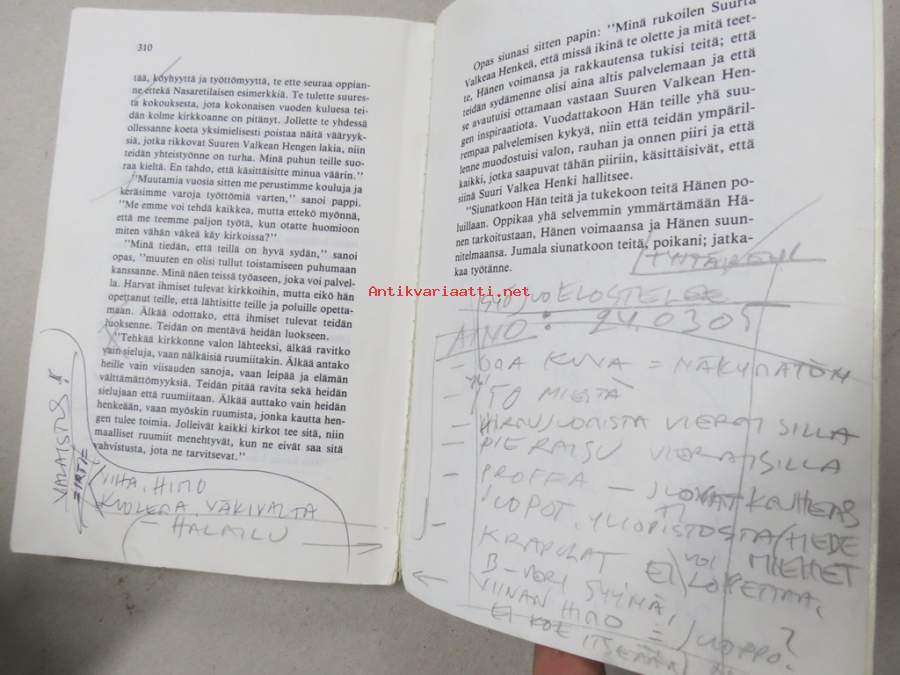 310
tää, köyhyyttä ja työttömyyttä, te ette seuraa oppian-
ne ettekä Nasaretilaisen esimerkkiä. Te tulette suures-
ta kokouksesta, jota kokonaisen vuoden kuluessa tei-
dän kolme kirkkoanne on pitänyt. Jollette te yhdessä
ollessanne koeta yksimielisesti poistaa näitä vääryyk-
siä, jotka rikkovat Suuren Valkean Hengen lakia, niin
teidän yhteistyönne on turha. Minä puhun teille suo-
raa kieltä. En tahdo, että käsittäisitte minua väärin."
"Muutamia vuosia sitten me perustimme kouluja ja
keräsimme varoja työttömiä varten," sanoi pappi.
"Me emme voi tehdä kaikkea, mutta ettekö myönnä,
että me teemme paljon työtä, kun otatte huomioon
miten vähän väkeä käy kirkoissa?"
"Minä tiedän, että teillä on hyvä sydän," sanoi
opas, "muuten en olisi tullut toistamiseen puhumaan
kanssanne. Minä näen teissä työaseen, joka voi palvel-
la. Harvat ihmiset tulevat kirkkoihin, mutta eikö hän
opettanut teille, että lähtisitte teille ja poluille opetta-
maan. Älkää odottako, että ihmiset tulevat teidän
luoksenne. Teidän on mentävä heidän luokseen.
"Tehkää kirkkonne valon lähteeksi, älkää ravitko
vain sieluja, vaan nälkäisiä ruumiitakin. Älkää antako
heille vain viisauden sanoja, vaan leipää ja elämän
välttämättömyyksiä. Teidän pitää ravita sekä heidän
sielujaan että ruumiitaan. Älkää auttako vain heidän
henkeään, vaan myöskin ruumista, jonka kautta hen-
gen tulee toimia. Jolleivät kaikki kirkot tee sitä, niin
maalliset ruumiit menehtyvät, kun ne eivät saa sitä
vahvistusta, jota ne tarvitsevat."
VIHA, HIMO
KUOLEMA, VÄKIVALTA
– HALAILU
Opas siunasi sitten papin: "Minä rukoilen Suurta
Valkeaa Henkeä, että missä ikinä te olette ja mitä teet-
te, Hänen voimansa ja rakkautensa tukisi teitä; että
teidän sydämenne olisi aina altis palvelemaan ja että
se avautuisi ottamaan vastaan Suuren Valkean Hen-
gen inspiraatiota. Vuodattakoon Hän teille yhä suu-
rempaa palvelemisen kykyä, niin että teidän ympäril-
lenne muodostuisi valon, rauhan ja onnen piiri ja että
kaikki, jotka saapuvat tähän piiriin, käsittäisivät, että
siinä Suuri Valkea Henki hallitsee.
"Siunatkoon Hän teitä ja tukekoon teitä Hänen po-
luillaan. Oppikaa yhä selvemmin ymmärtämään Hä-
nen tarkoitustaan, Hänen voimaansa ja Hänen suun-
nitelmaansa. Jumala siunatkoon teitä, poikani; jatka-
kaa työtänne.
Antikvariaatti.net
SYÖ JUO ELOSTELEE
AINO: 24.0305
– KUVA = NÄKYMÄTÖN
– 150 MIESTÄ
– VIERAISILLA
– PIERAISU VIERAISILLA
– PROFFA – JUOVAT KAUHEAS
JUOPOT. YLIOPISTOSTA/HEDE
– KRAPULAT EI VOI MIEHET
B-VERI SYYNÄ LOPETTAA,
VIINAN HIMO = JUOPPO?
EI KOE ITSEÄÄN